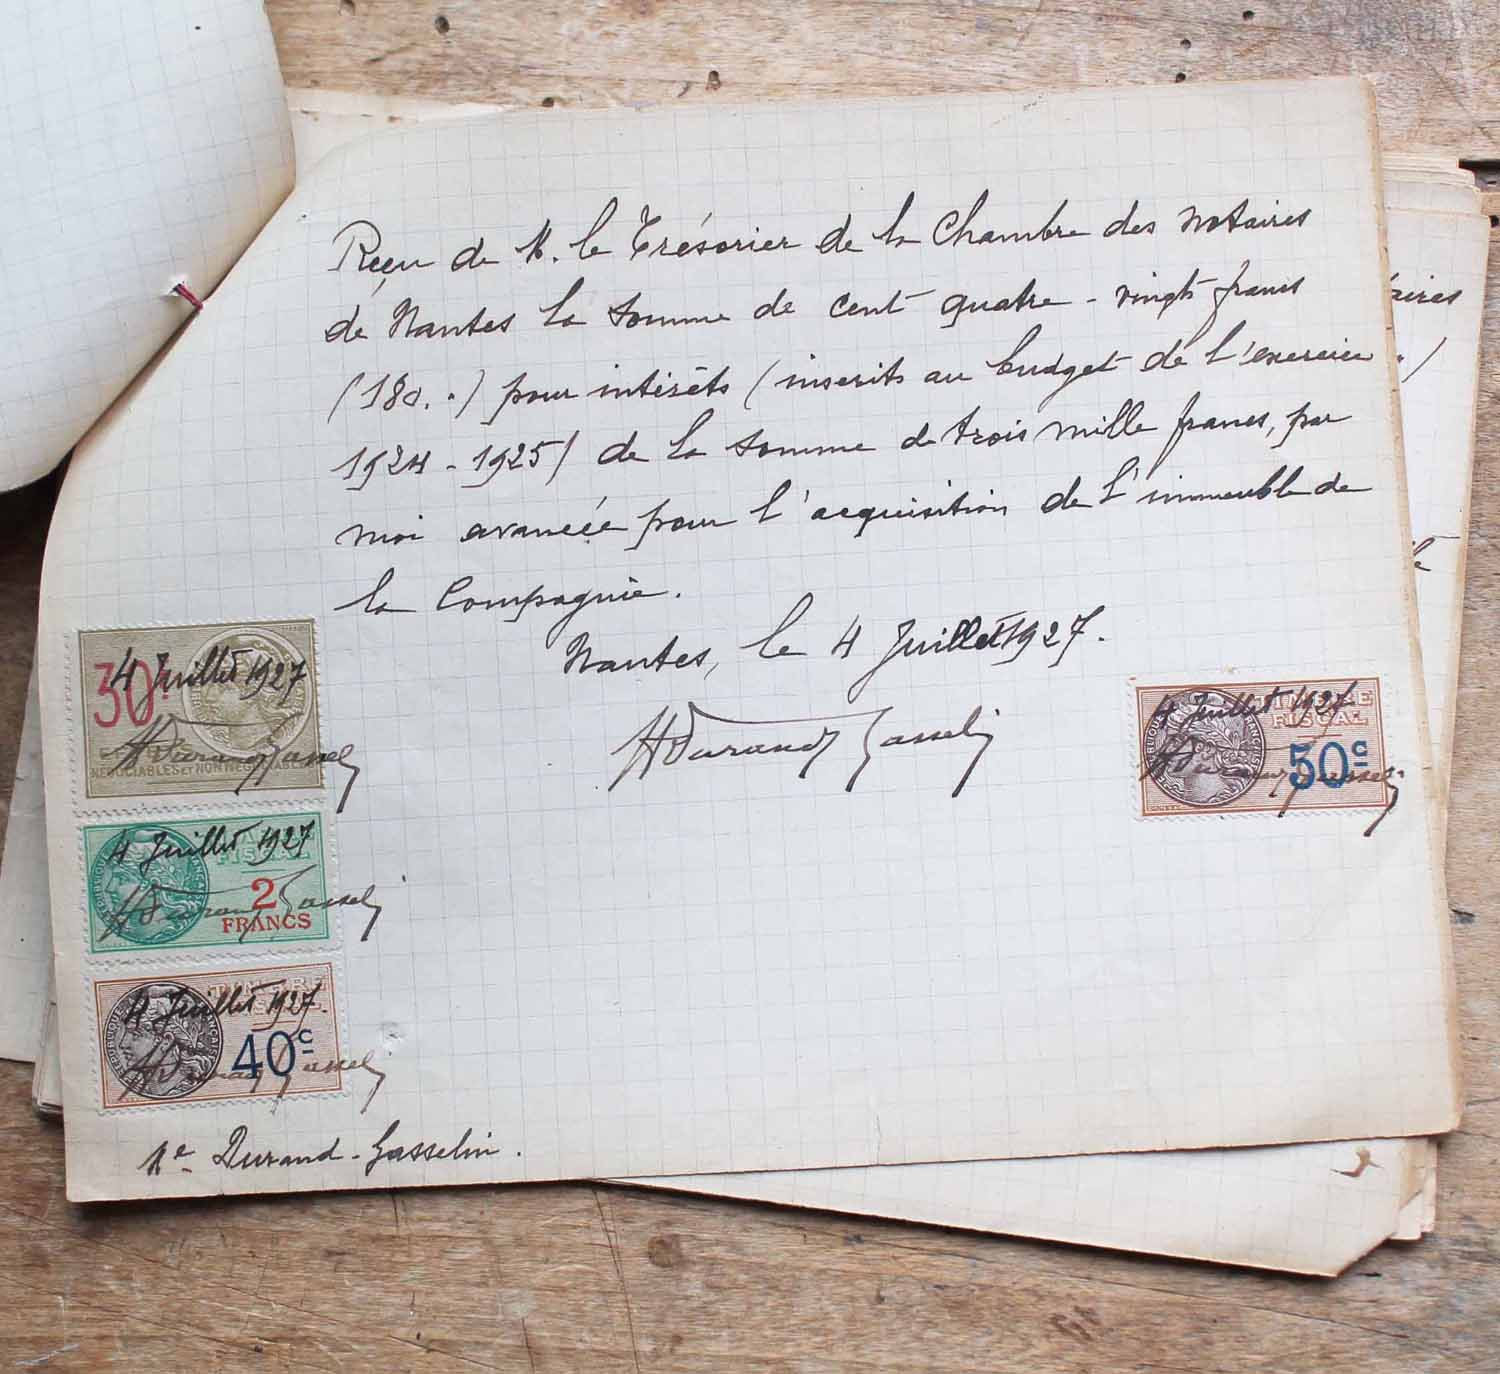 Reçu de M. le Trésorier de la Chambre des Notaires
de Nantes la somme de cent quatre-vingts francs
(180. ») pour intérêts (inscrits au budget de l'exercice
1924-1925) de la somme de trois mille francs, par
moi avancée pour l'acquisition de l'immeuble de
la Compagnie.
Nantes, le 4 Juillet 1927.
HDurand Gasselin
30c
4 Juillet 1927
HDurand Gasselin
NÉGOCIABLES ET NON NÉGOCIABLES
4 Juillet 1927
FISCAL
2
FRANCS
HDurand Gasselin
TIMBRE
4 Juillet 1927.
40c
HDurand Gasselin
TIMBRE
FISCAL
4 Juillet 1927
50c
HDurand Gasselin
RÉPUBLIQUE FRANÇAISE
Me Durand-Gasselin.
aires